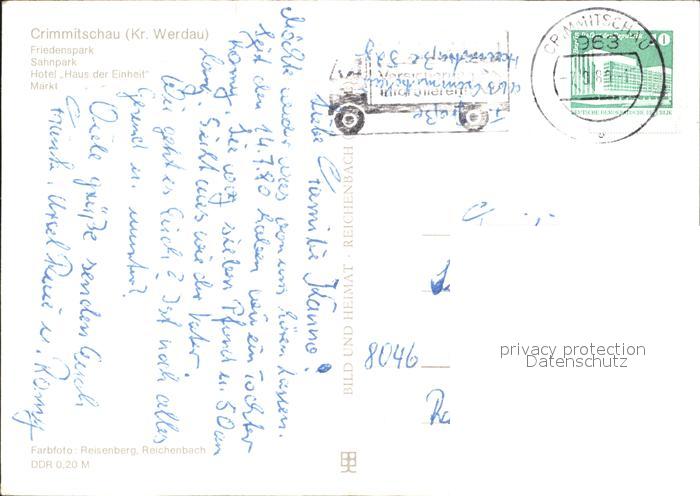 Crimmitschau (Kr. Werdau)
Friedenspark
Sahnpark
Hotel „Haus der Einheit"
Markt
Liebe Familie Hanno!
Möchte wieder was von uns hören lassen.
Seit den 14.7.80 haben wir ein Tochter
Romy. Sie wog sieben Pfund u. 50 cm
lang. Sieht aus wie der Vater.
Wie geht es Euch? Ist noch alles
Gesund u. munter?
Viele grüße senden Euch
Frank, Ursel René u. Romy
Farbfoto: Reisenberg, Reichenbach
DDR 0,20 M
BILD UND HEIMAT · REICHENBACH
CRIMMITSCHAU
963
DEUTSCHE DEMOKRATISCHE REPUBLIK
8046
privacy protection
Datenschutz